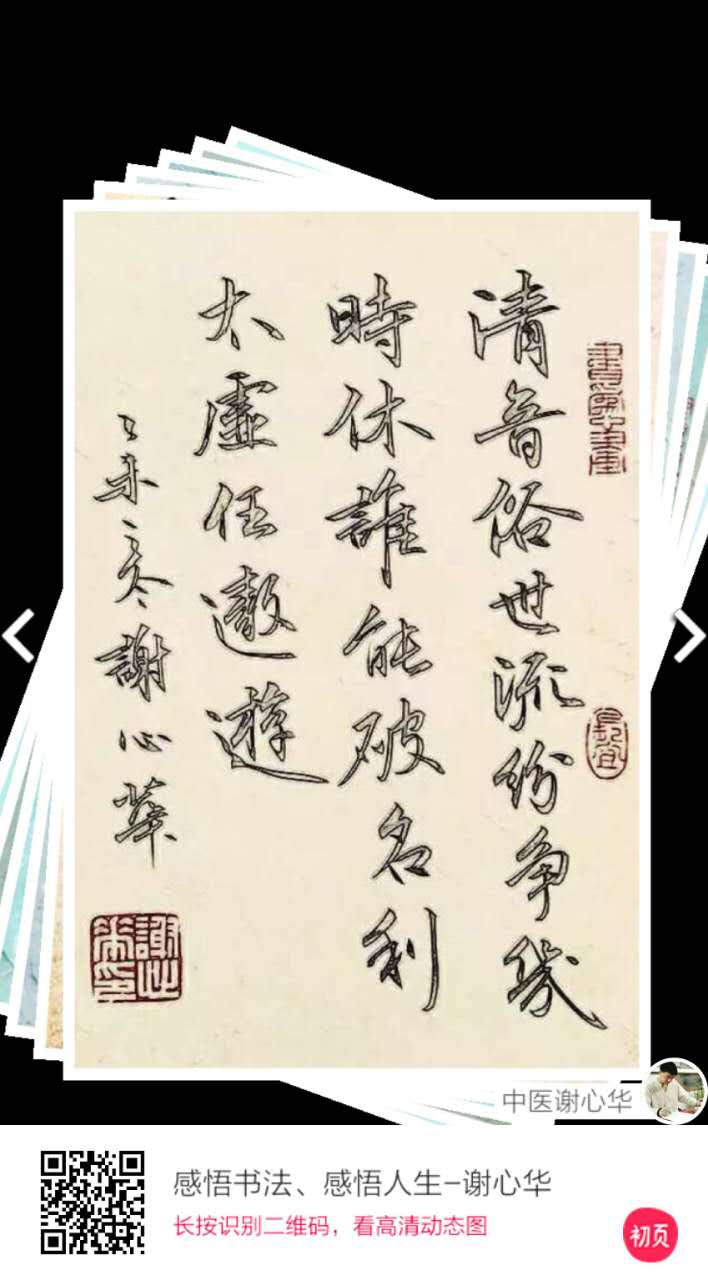 清音俗世流纷争幾
時休誰能破名利
太虚任遨遊
乙未之冬謝心華
中医谢心华
感悟书法、感悟人生-谢心华
长按识别二维码，看高清动态图
初页